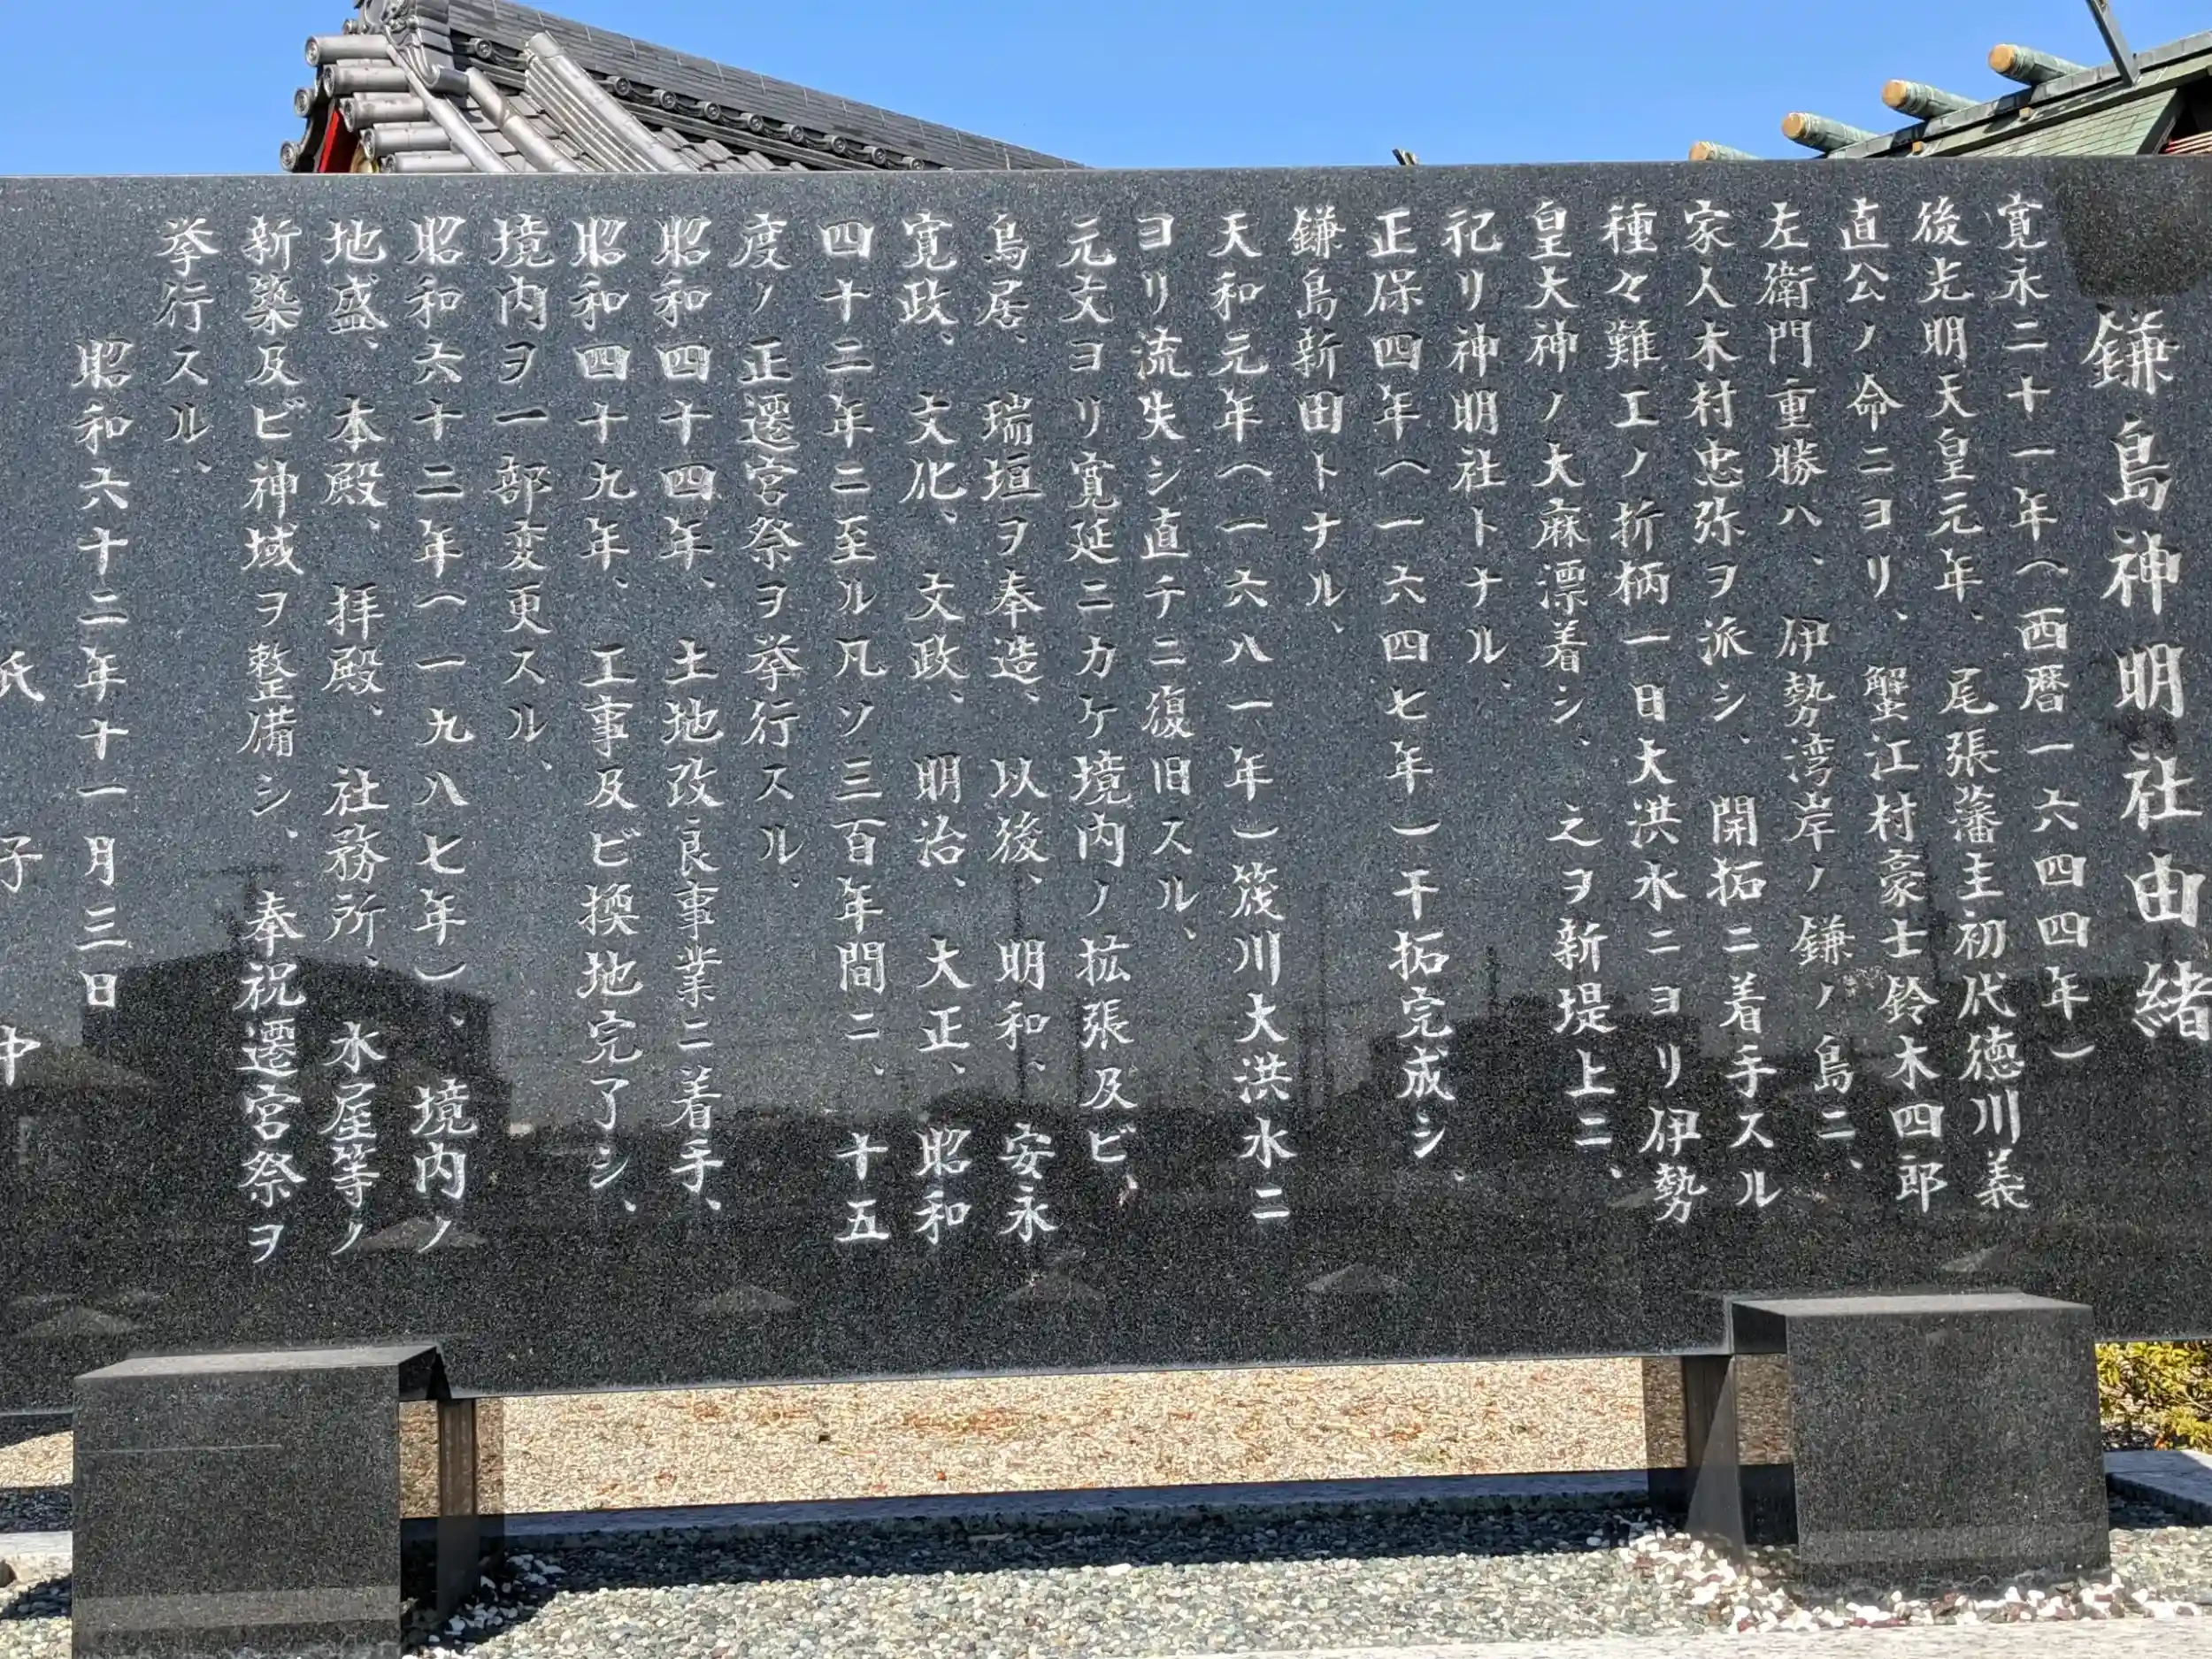 鎌島神明社由緒
寛永二十一年(西暦一六四四年)
後光明天皇元年、尾張藩主初代徳川義
直公ノ命ニヨリ、蟹江村豪士鈴木四郎
左衛門重勝ハ、伊勢湾岸ノ鎌ノ島ニ、
家人木村忠弥ヲ派シ、開拓ニ着手スル
種々難工ノ折柄一日大洪水ニヨリ伊勢
皇大神ノ大麻漂着シ、之ヲ新堤上ニ、
祀リ神明社トナル、
正保四年(一六四七年)干拓完成シ、
鎌島新田トナル、
天和元年(一六八一年)筏川大洪水ニ
ヨリ流失シ直チニ復旧スル、
元文ヨリ寛延ニカケ境内ノ拡張及ビ、
鳥居、瑞垣ヲ奉造、以後、明和、安永
寛政、文化、文政、明治、大正、昭和
四十二年ニ至ル凡ソ三百年間ニ、十五
度ノ正遷宮祭ヲ挙行スル、
昭和四十四年、土地改良事業ニ着手、
昭和四十九年、工事及ビ換地完了シ、
境内ヲ一部変更スル、
昭和六十二年(一九八七年)、境内ノ
地盛、本殿、拝殿、社務所、水屋等ノ
新築及ビ神域ヲ整備シ、奉祝遷宮祭ヲ
挙行スル、
昭和六十二年十一月三日
氏子中